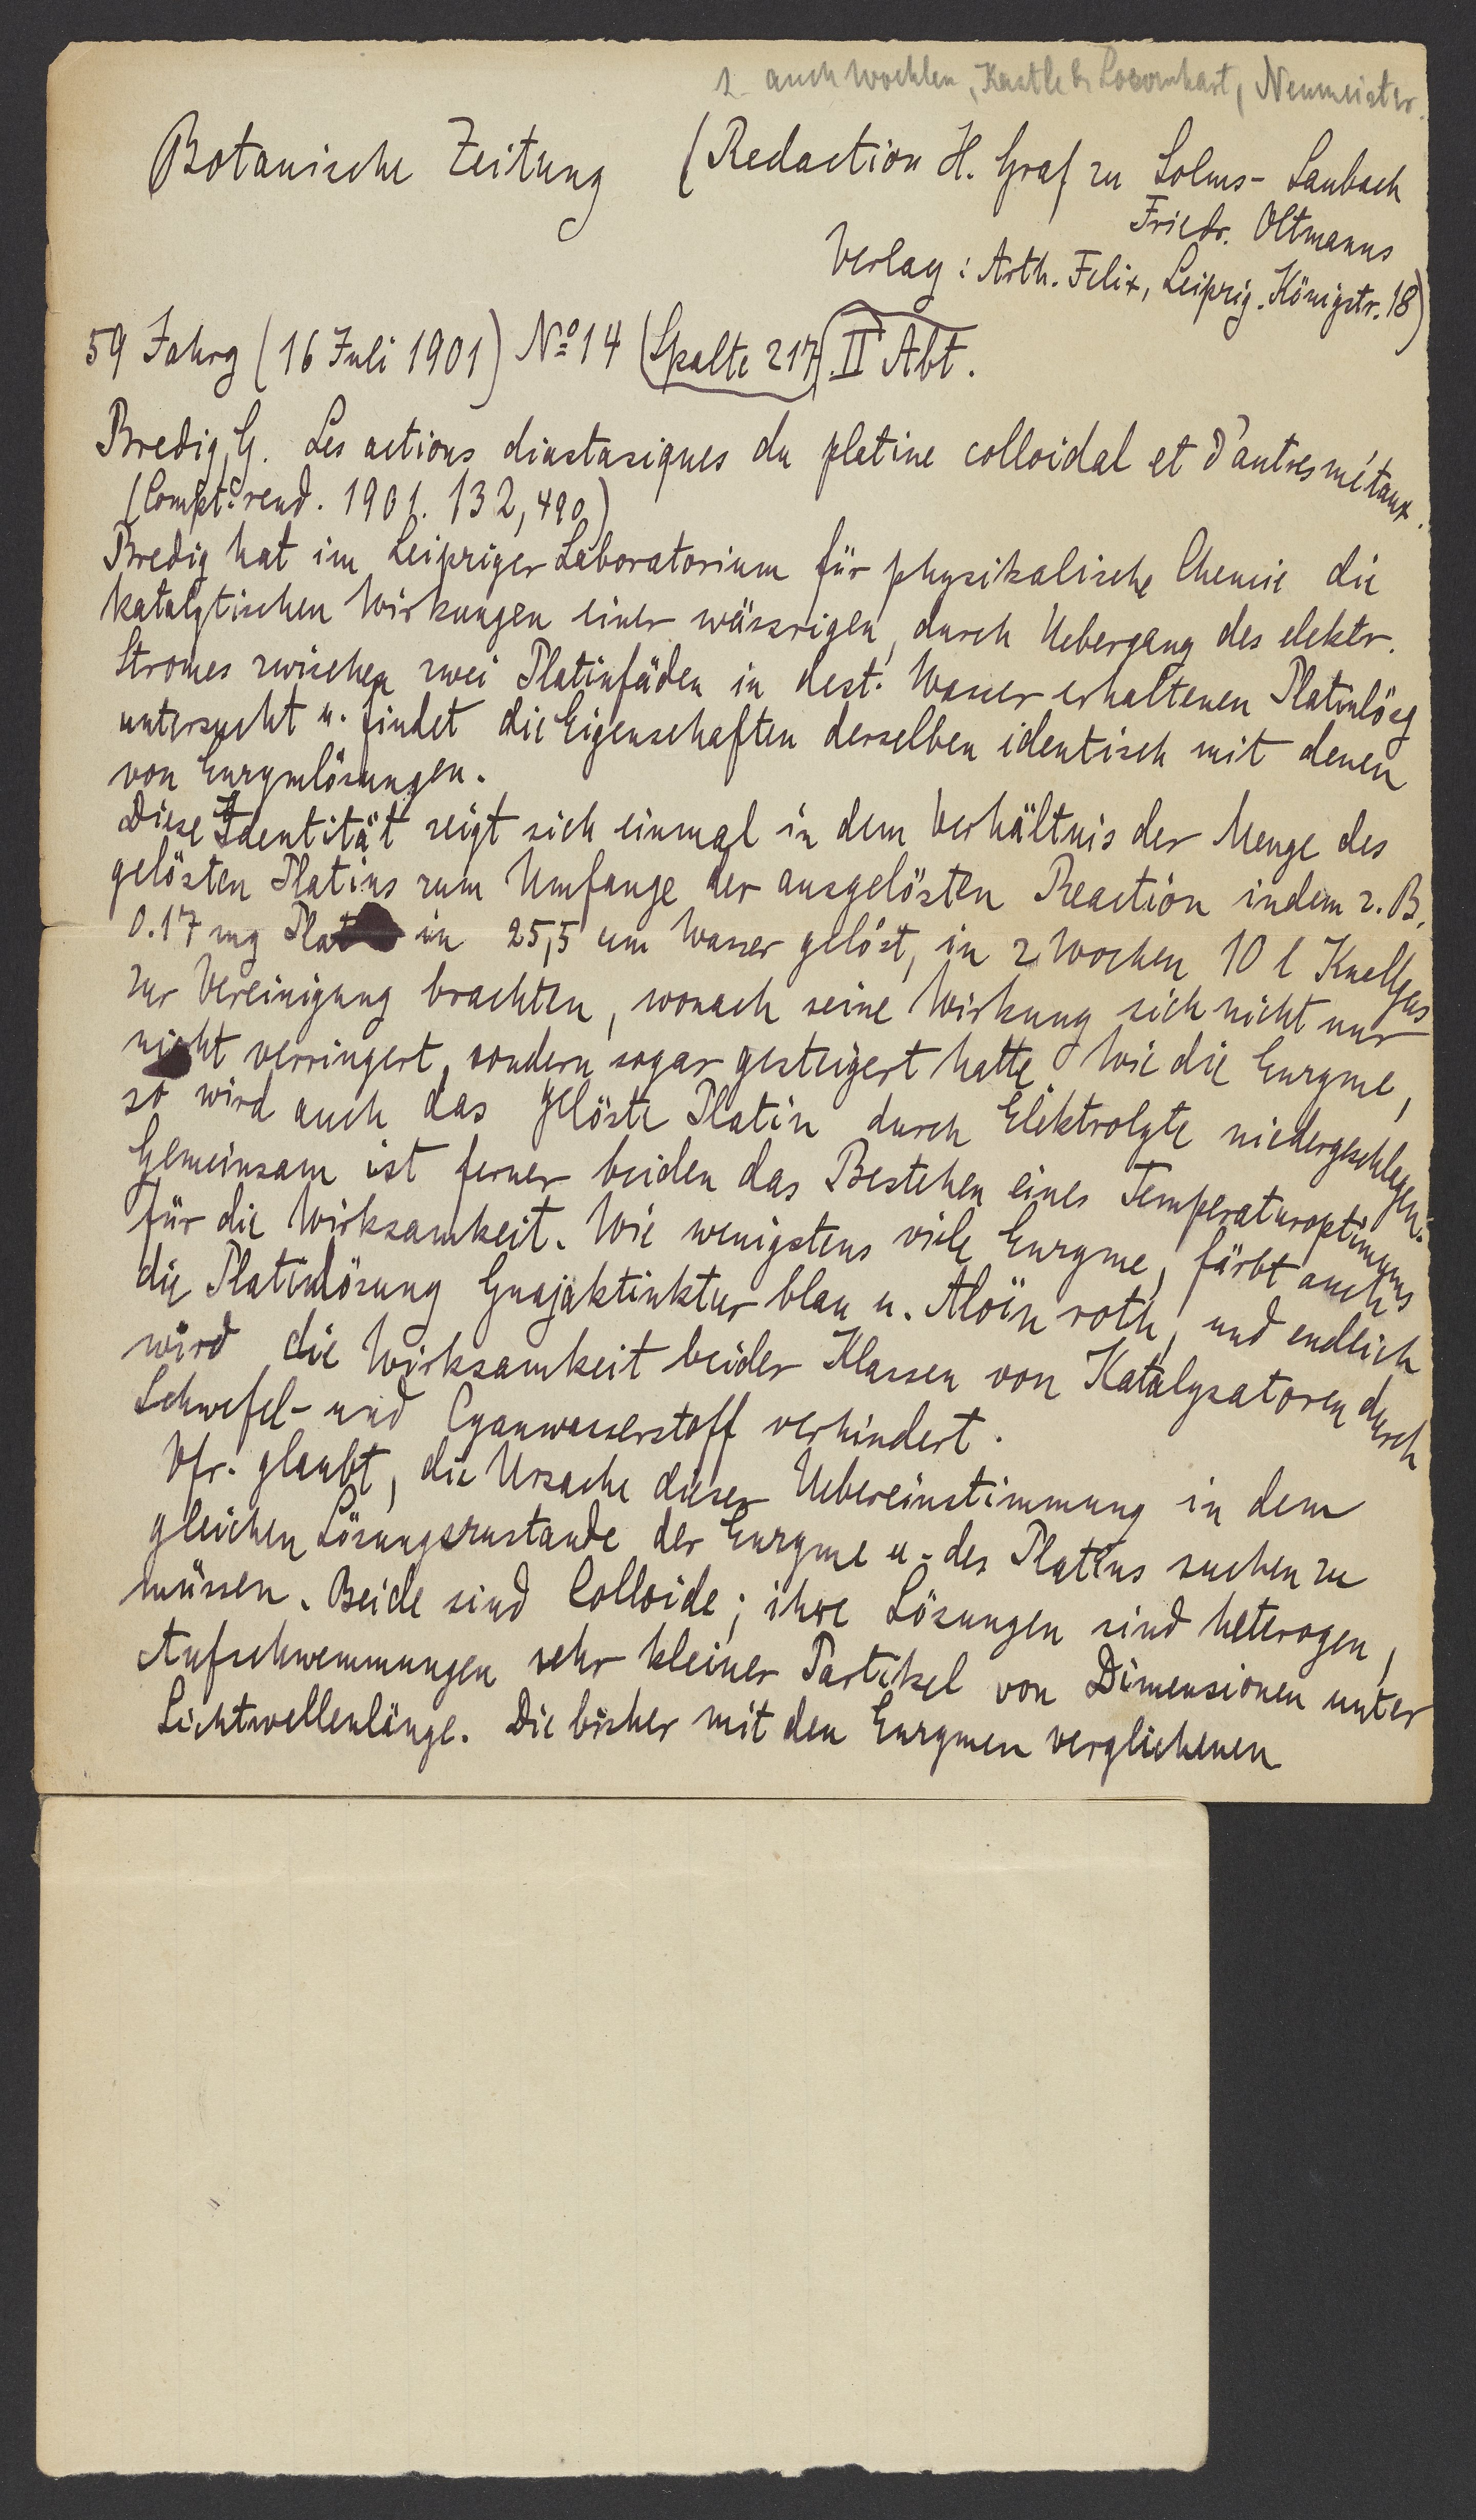 s. auch Woehlen, Kastle & Loevenhart, Neumeister.
Botanische Zeitung (Redaction H. Graf zu Solms-Laubach
Friedr. Oltmanns
Verlag: Arth. Felix, Leipzig. Königstr. 18)
59 Jahrg (16 Juli 1901) No 14 (Spalte 217) II Abt.
Bredig, G. Les actions diastasiques du platine colloidal et d'autres métaux.
(Compt. rend. 1901. 132, 490)
Bredig hat im Leipziger Laboratorium für physikalische Chemie die
katalytischen Wirkungen einer wässrigen, durch Uebergang des elektr.
Stromes zwischen zwei Platinfäden in dest. Wasser erhaltenen Platinlösg
untersucht u. findet die Eigenschaften derselben identisch mit denen
von Enzymlösungen.
Diese Identität zeigt sich einmal in dem Verhältnis der Menge des
gelösten Platins zum Umfange der ausgelösten Reaction indem z. B.
0.17 mg Plat in 25,5 ccm Wasser gelöst, in 2 Wochen 10 l Knallgas
zur Vereinigung brachten, wonach seine Wirkung sich nicht nur
nicht verringert, sondern sogar gesteigert hatte. Wie die Enzyme,
so wird auch das gelöste Platin durch Elektrolyte niedergeschlagen.
Gemeinsam ist ferner beiden das Bestehen eines Temperaturoptimums
für die Wirksamkeit. Wie wenigstens viele Enzyme, färbt auch
die Platinlösung Guajaktinktur blau u. Aloïn roth, und endlich
wird die Wirksamkeit beider Klassen von Katalysatoren durch
Schwefel- und Cyanwasserstoff verhindert.
Vfr. glaubt, die Ursache dieser Uebereinstimmung in dem
gleichen Lösungszustande der Enzyme u. des Platins suchen zu
müssen. Beide sind Colloide; ihre Lösungen sind heterogen,
Aufschwemmungen sehr kleiner Partikel von Dimensionen unter
Lichtwellenlänge. Die bisher mit den Enzymen verglichenen